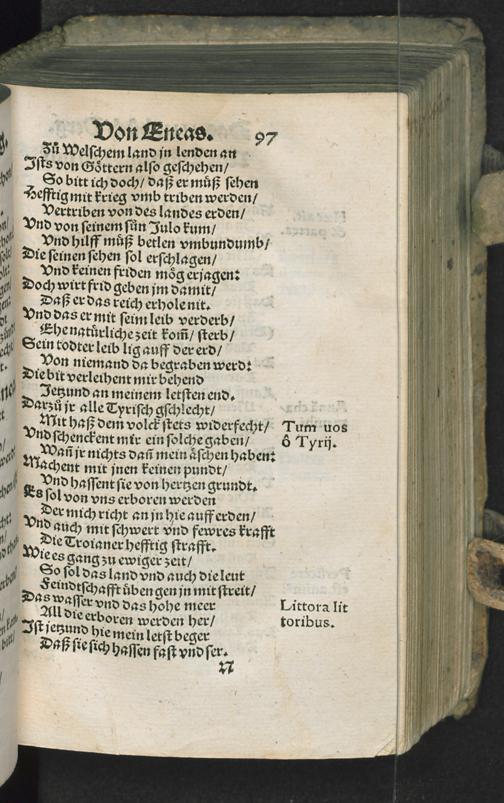 Von Æneas. 97
Zů Welschem land in lenden an
Ists von Göttern also geschehen/
So bitt ich doch/ daß er můß sehen
Hefftig mit krieg vmb triben werden/
Vertriben von des landes erden/
Vnd von seinem sün Julo kum/
Vnd hilff můß betlen vmbundumb/
Die seinen sehen sol erschlagen/
Vnd keinen friden mög erjagen:
Doch wirt frid geben jm damit/
Daß er das reich erhole nit.
Vnd das er mit seim leib verderb/
Ehe natürliche zeit kom̃/ sterb/
Sein todter leib lig auff der erd/
Von niemand da begraben werd:
Die bit verleihent mir behend
Jetzund an meinem letsten end.
Darzů jr alle Tyrisch gschlecht/
Mit haß dem volck stets widerfecht/
Vnd schenckent mir ein solche gaben/
Wañ jr nichts dañ mein äschen haben:
Machent mit jnen keinen pundt/
Vnd hassent sie von hertzen grundt.
Es sol von vns erboren werden
Der mich richt an jn hie auff erden/
Vnd auch mit schwert vnd fewres krafft
Die Troianer hefftig strafft.
Wie es gang zu ewiger zeit/
So sol das land vnd auch die leut
Feindtschafft üben gen jn mit streit/
Das wasser vnd das hohe meer
All die erboren werden her/
Ist jetzund hie mein letst beger
Daß sie sich hassen fast vnd ser.
N
Tum uos
ô Tyrij.
Littora lit
toribus.